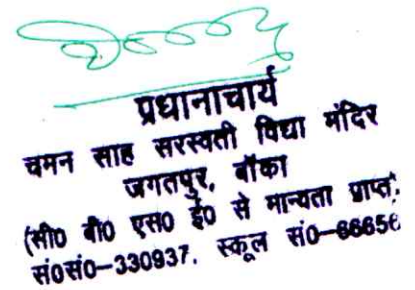 प्रधानाचार्य
चमन साह सरस्वती विद्या मंदिर
जगतपुर, बाँका
(सी० बी० एस० ई० से मान्यता प्राप्त)
सं०सं०-330937. स्कूल सं०-66656